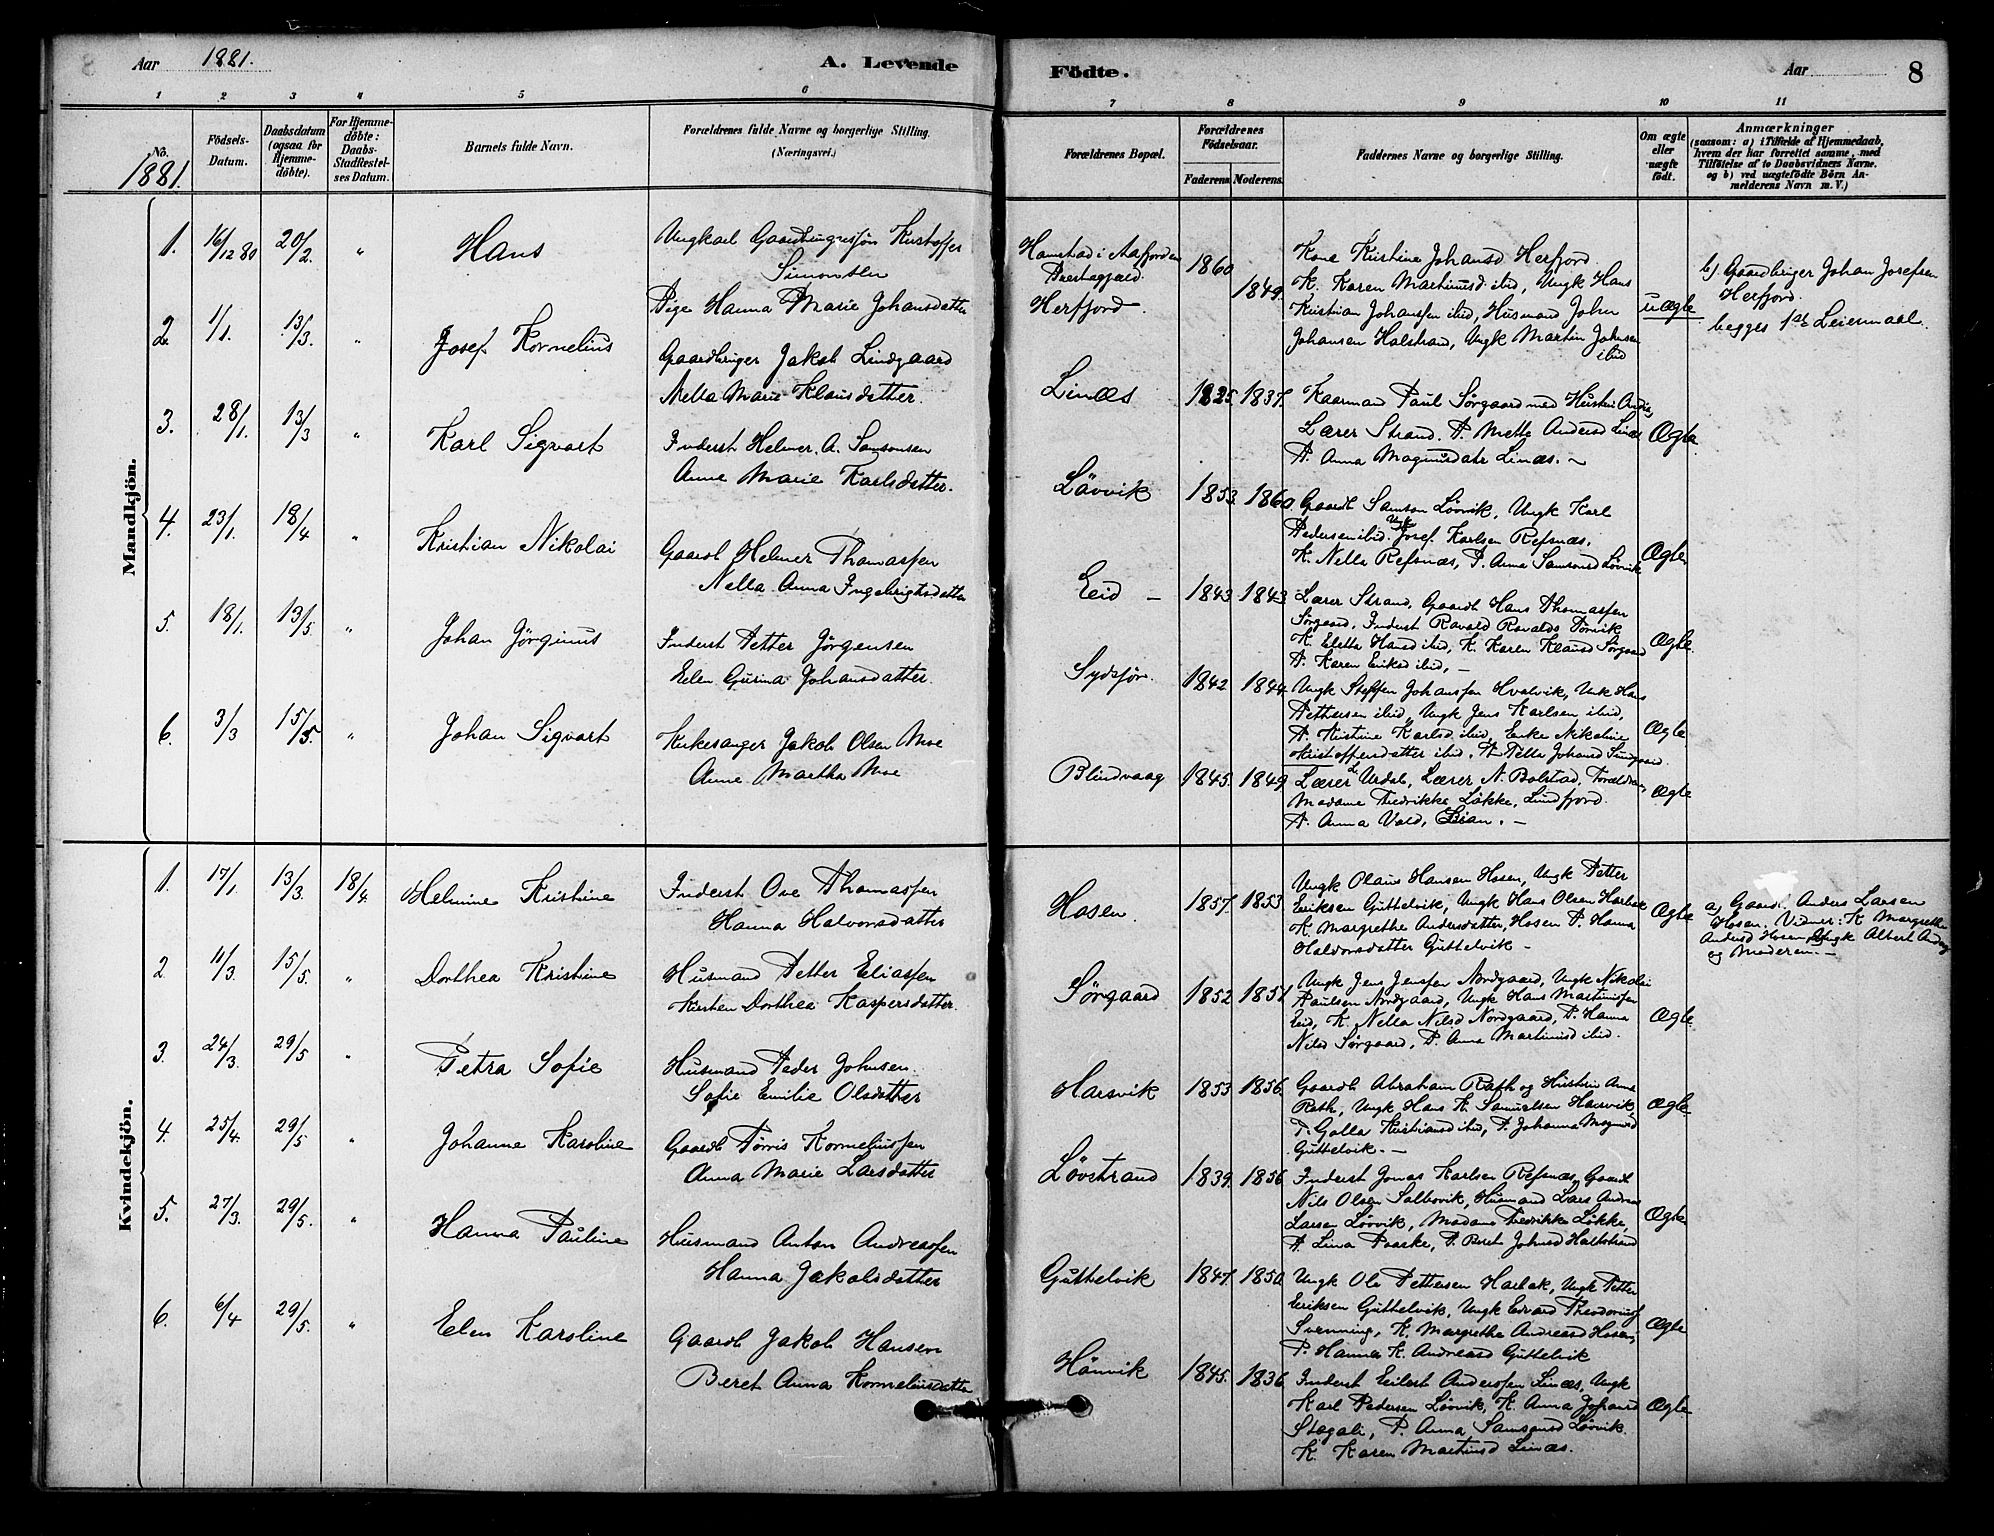 8
Aar 1881.
A. Levende
1 2 3 4 5 6
No.
Födsels-
Datum.
Daabsdatum
(ogsaa for
Hjemme-
døbte).
For Hjemme-
døbte:
Daabs-
Stadfæstel-
ses Datum.
Barnets fulde Navn.
Forældrenes fulde Navne og borgerlige Stilling.
(Næringsvei.)
1881.
Mandkjön.
1. 16/12 80 20/2. " Hans
Ungkarl Gaardbrugersøn Kristoffer
Simonsen
Pige Hanna Marie Johansdatter
2. 1/1. 13/3. " Josef Kornelius
Gaardbruger Jakob Lindgaard
Nella Marie Klausdatter.
3. 28/1. 13/3 " Karl Sigvart
Inderst Helmer A. Samsonsen
Anne Marie Karlsdatter.
4. 23/1. 18/4 " Kristian Nikolai
Gaardb Helmer Thomassen
Nella Anna Ingebrigtsdatter
5. 18/1. 13/5. " Johan Jörginus
Inderst Petter Jörgensen
Elen Gurina Johansdatter.
6. 3/3 15/5. " Johan Sigvart
Kirkesanger Jakob Olsen Moe
Anne Martha Moe
Kvindekjön.
1. 17/1. 13/3. 18/4. Helmine Kristine
Inderst Ove Thomassen
Hanna Halvorsdatter
2. 11/3. 15/5. " Dorthea Kristine
Husmand Petter Eliassen
Kirsten Dorthea Kaspersdatter.
3. 24/3. 29/5 " Petra Sofie
Husmand Peder Johnsen.
Sofie Emilie Olsdatter
4. 25/4. 29/5 " Johanne Karoline
Gaardb Tørris Korneliussen
Anna Marie Larsdatter
5. 27/3. 29/5. " Hanna Pauline
Husmand Anton Andreassen
Hanna Jakobsdatter
6. 6/4 29/5. " Elen Karoline
Gaardb Jakob Hansen
Beret Anna Korneliusdatter
Födte.
Aar 8
7 8 9 10 11
Forældrenes Bopæl.
Forældrenes
Födselsaar.
Faderens Moderens.
Faddernes Navne og borgerlige Stilling.
Om ægte
eller
uægte
født.
Anmærkninger
(saasom: a) i Tilfælde af Hjemmedaab,
hvem der har forrettet samme, med
Tilföielse af to Daabsvidners Navne.
og b) ved uægtefödte Börn An-
melderens Navn m. V.)
Hamstad i Aafjorden
Præstegjæld.
Herfjord.
1860 1849.
Kone Kristine Johansd Herfjord.
K. Karen Martinusd ibid, Ungk Hans
Kristian Johanssen ibid, Husmand Johan
Johansen Halstrand, Ungk Martin Johnsen
ibid
uægte
b). Gaardbruger Johan Josefsen
Herfjord.
begges 1ste Leiermaal.
Linæs 1825. 1837.
Kaarmand Paul Sørgaard med Hustru
Lærer Strand. P. Mette Andersd Linæs
P. Anna Magnusdatr Linæs. ~
Ægte.
Lövvik 1853. 1860.
Gaardb Samson Lövvik, Ungk Karl
Pedersen ibid. Ungk Josef Karlsen Refsnæs.
K. Nella Refsnæs, P. Anna Samsonsd Lövvik
Ægte.
Eid – 1843 1843
Lærer Strand, Gaardb Hans Thomassen
Sørgaard, Inderst Ravald Ravalds
K. Eletta Hansd ibid, K. Karen Klausd Sørgaard
P. Karen Eriksd ibid, –
Ægte.
1842 1844.
Ungk Steffen Johanssen Hvalvik, Ungk Hans
Pettersen ibid, Ungk Jens Karlsen ibid,
P. Kristine Karlsd ibid, Enke Nikoline
Kristoffersdatter ibid,
Ægte.
Blindvaag 1845. 1849.
Lærer Urdal, Lærer N. Bolstad, Forældrene,
Madame Fredrikke Løkke, Lindfjord.
P. Anna Vold, . –
Ægte
Hosen. 1857. 1853.
Ungk Olaus Hansen Hosen, Ungk Petter
Eriksen Guttelvik, Ungk Hans Olsen Harbak
K. Margrethe Andersdatter, Hosen P. Hanna
Haldorsdatter Guttelvik –
Ægte
a) Gaardb. Anders Larsen
Hosen, Vidner: K. Margrethe
Andersd Hosen, Ungk Albert Anders
og Moderen. –
Sørgaard 1852 1851
Ungk Jens Jenssen Nordgaard, Ungk Nikolai
Paulsen Nordgaard, Ungk Hans Martinussen
Eid, K. Nella Nilsd Nordgaard, P. Hanna
Nilsd Sørgaard, P. Anna Martinusd ibid.
Ægte
Harsvik 1853 1856.
Gaardb Abraham Rath og Hustru Anna
Rath, Ungk Hans K. Samuelsen Harsvik,
P. Golla Kristiansd ibid, P. Johanna Magnusd
Guttelvik. –
Ægte
Lövstrand 1839. 1856.
Inderst Jonas Karlsen Refsnæs, Gaardb
Nils Olsen Salbovik, Husmand Lars Andreas
Larsen Lövvik, Madame Fredrikke Løkke,
P. Lina Paaske, P. Beret Johnsd Halstrand
Ægte
Guttelvik 1847. 1850.
Ungk Ole Pettersen Harbak, Ungk Petter
Eriksen Guttelvik, Ungk Edvard Theodoriuss
Svenning, K. Margrethe Andreasd Hosen,
P. Hanna K. Andreasd Guttelvik
Ægte
Hönvik 1845. 1836.
Inderst Eilert Anderssen Linæs, Ungk
Karl Pedersen Lövvik, K. Anna Johansd
P. Anna Samsonsd Lövvik.
K. Karen Martinusd Linæs.
Ægte